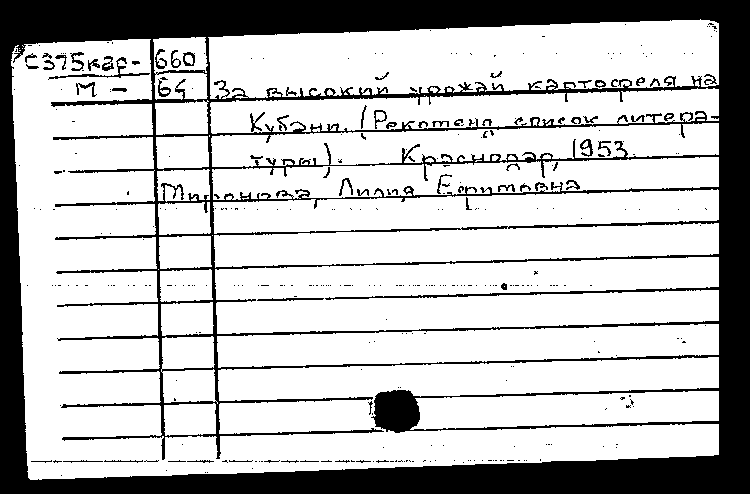 С375кар- 660
М - 64 За высокий урожай картофеля на
Кубани. (Рекоменд список литера-
туры). Краснодар, 1953
Миронова, Лилия Ефимовна